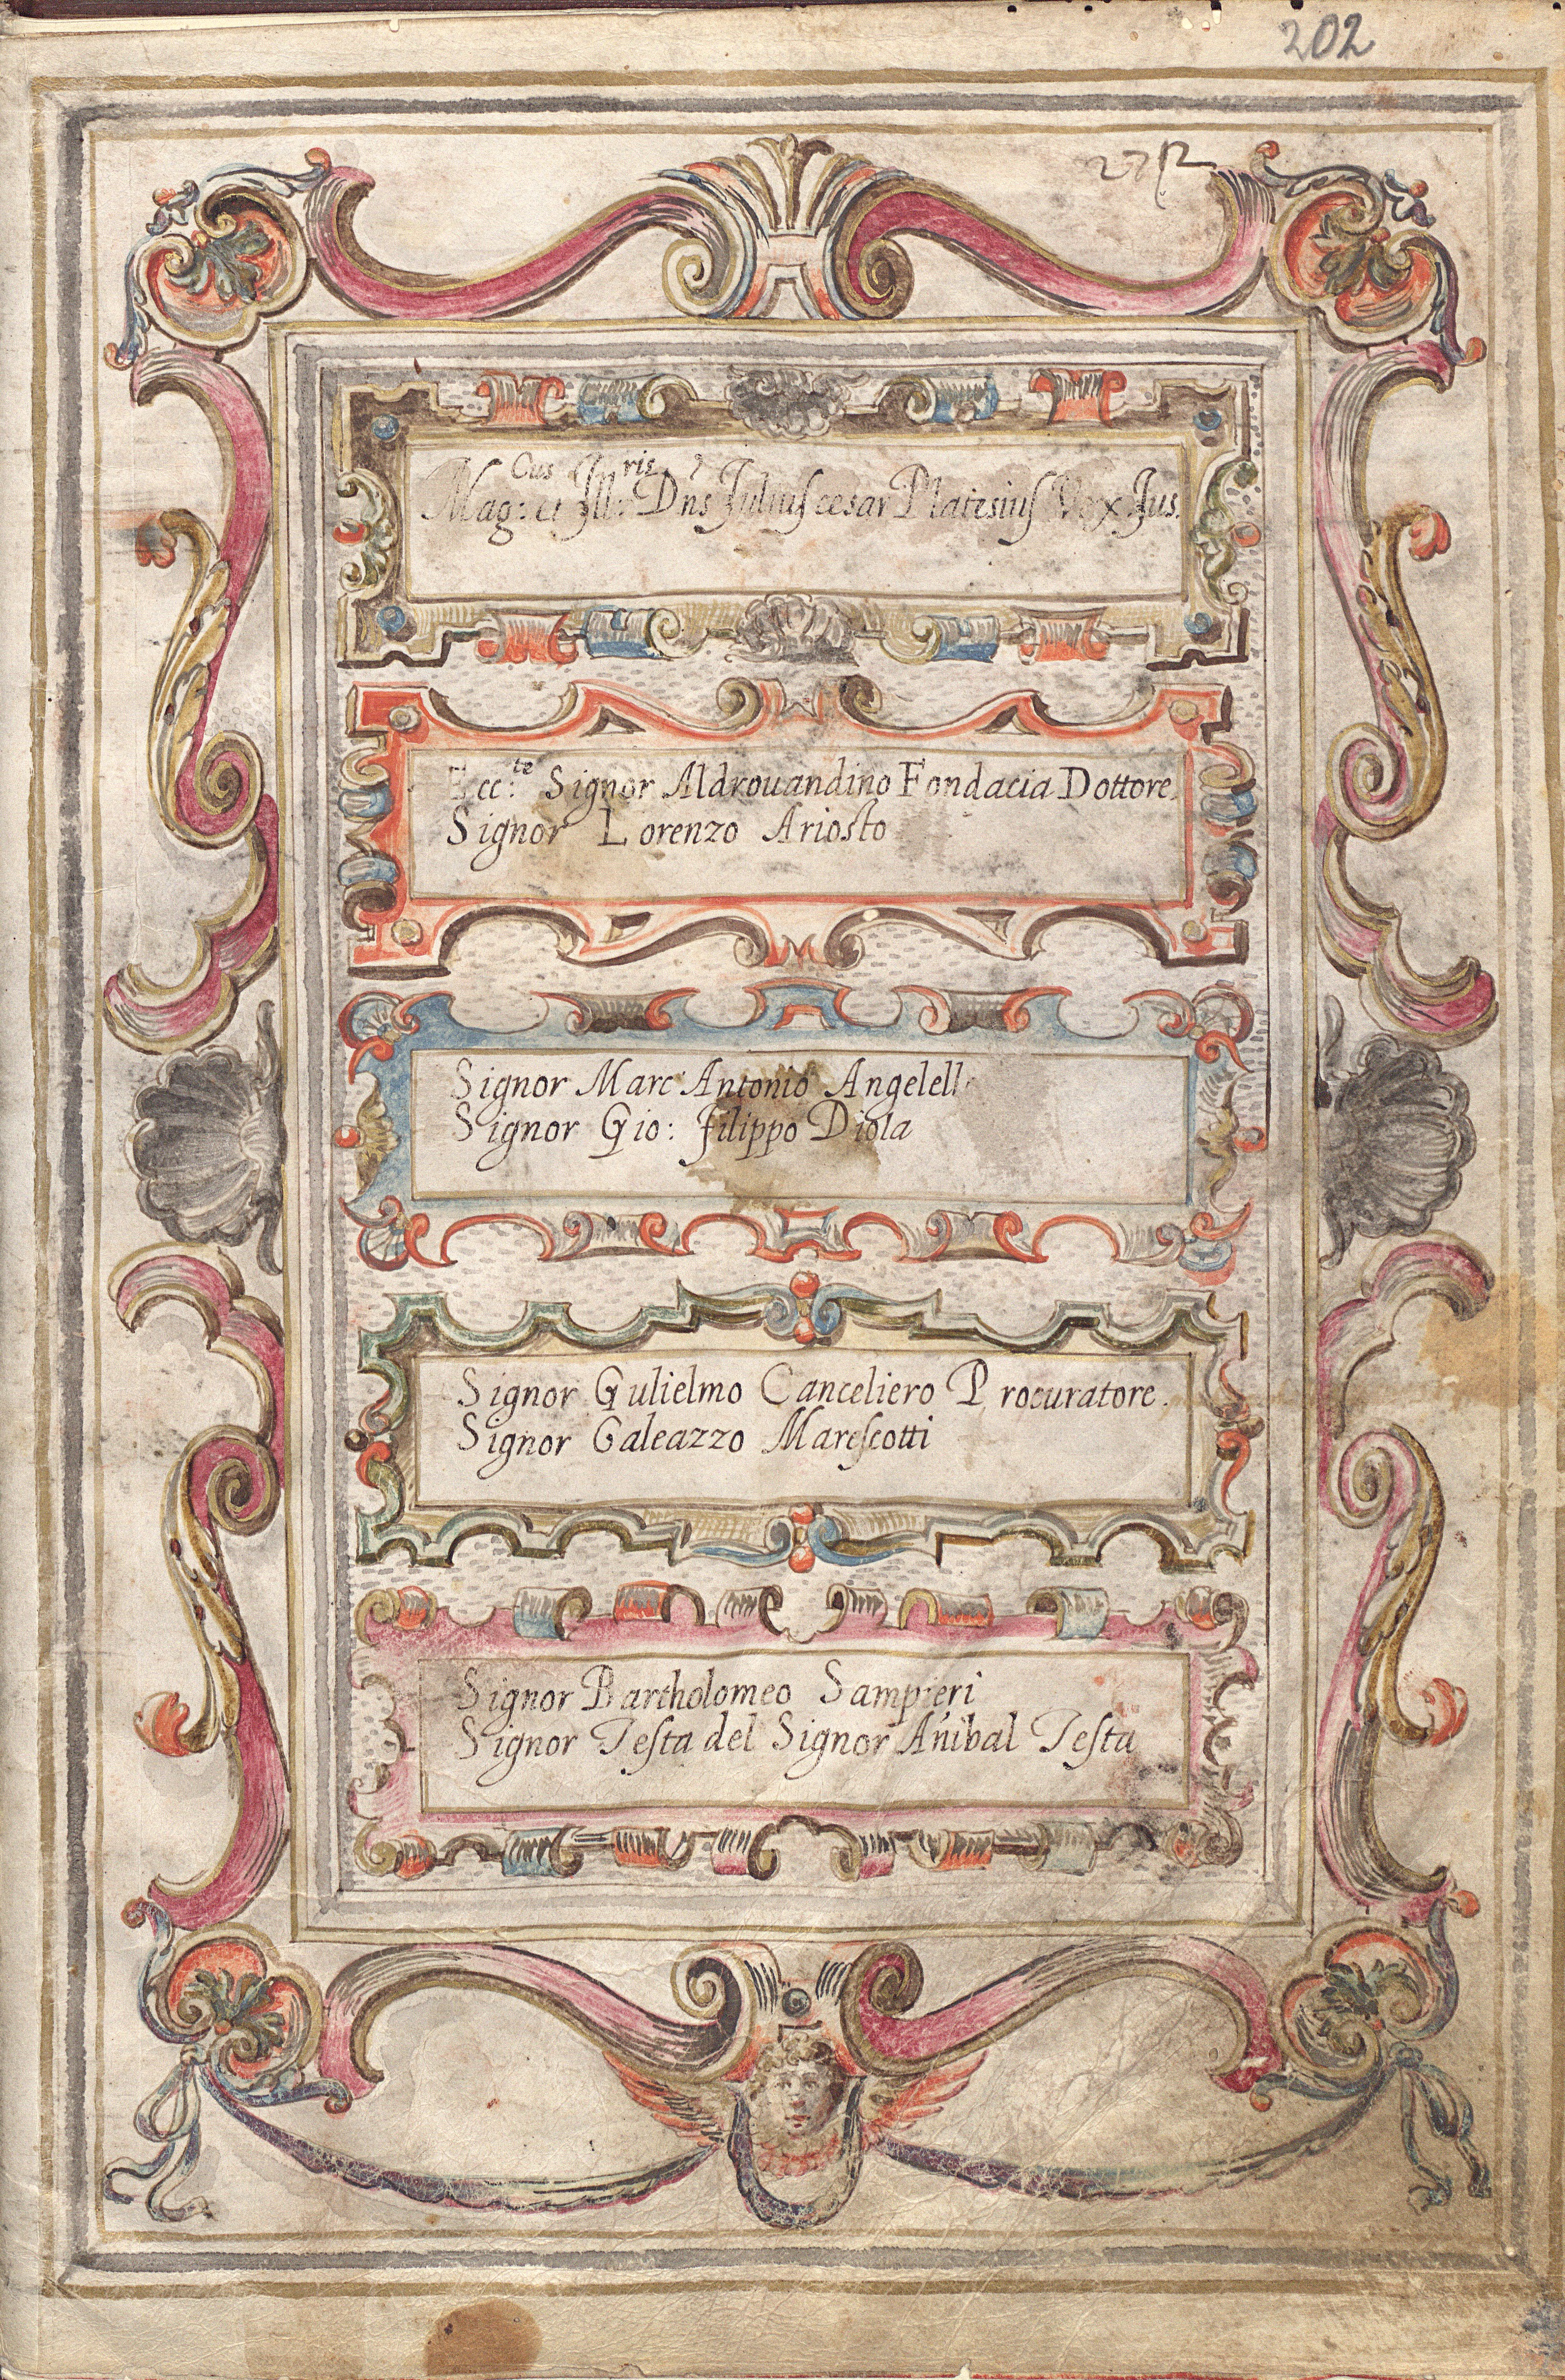 202
27
Mag:cus et Ill:ris Dñs Juliuscesar Platesius Vex. Jus.
Ecc:te Signor Aldrouandino Fondacia Dottore.
Signor Lorenzo Ariosto
Signor Marc Antonio Angelelli
Signor Gio: Filippo Diola
Signor Gulielmo Canceliero Procuratore.
Signor Galeazzo Marescotti
Signor Bartholomeo Sampieri
Signor Testa del Signor Añibal Testa